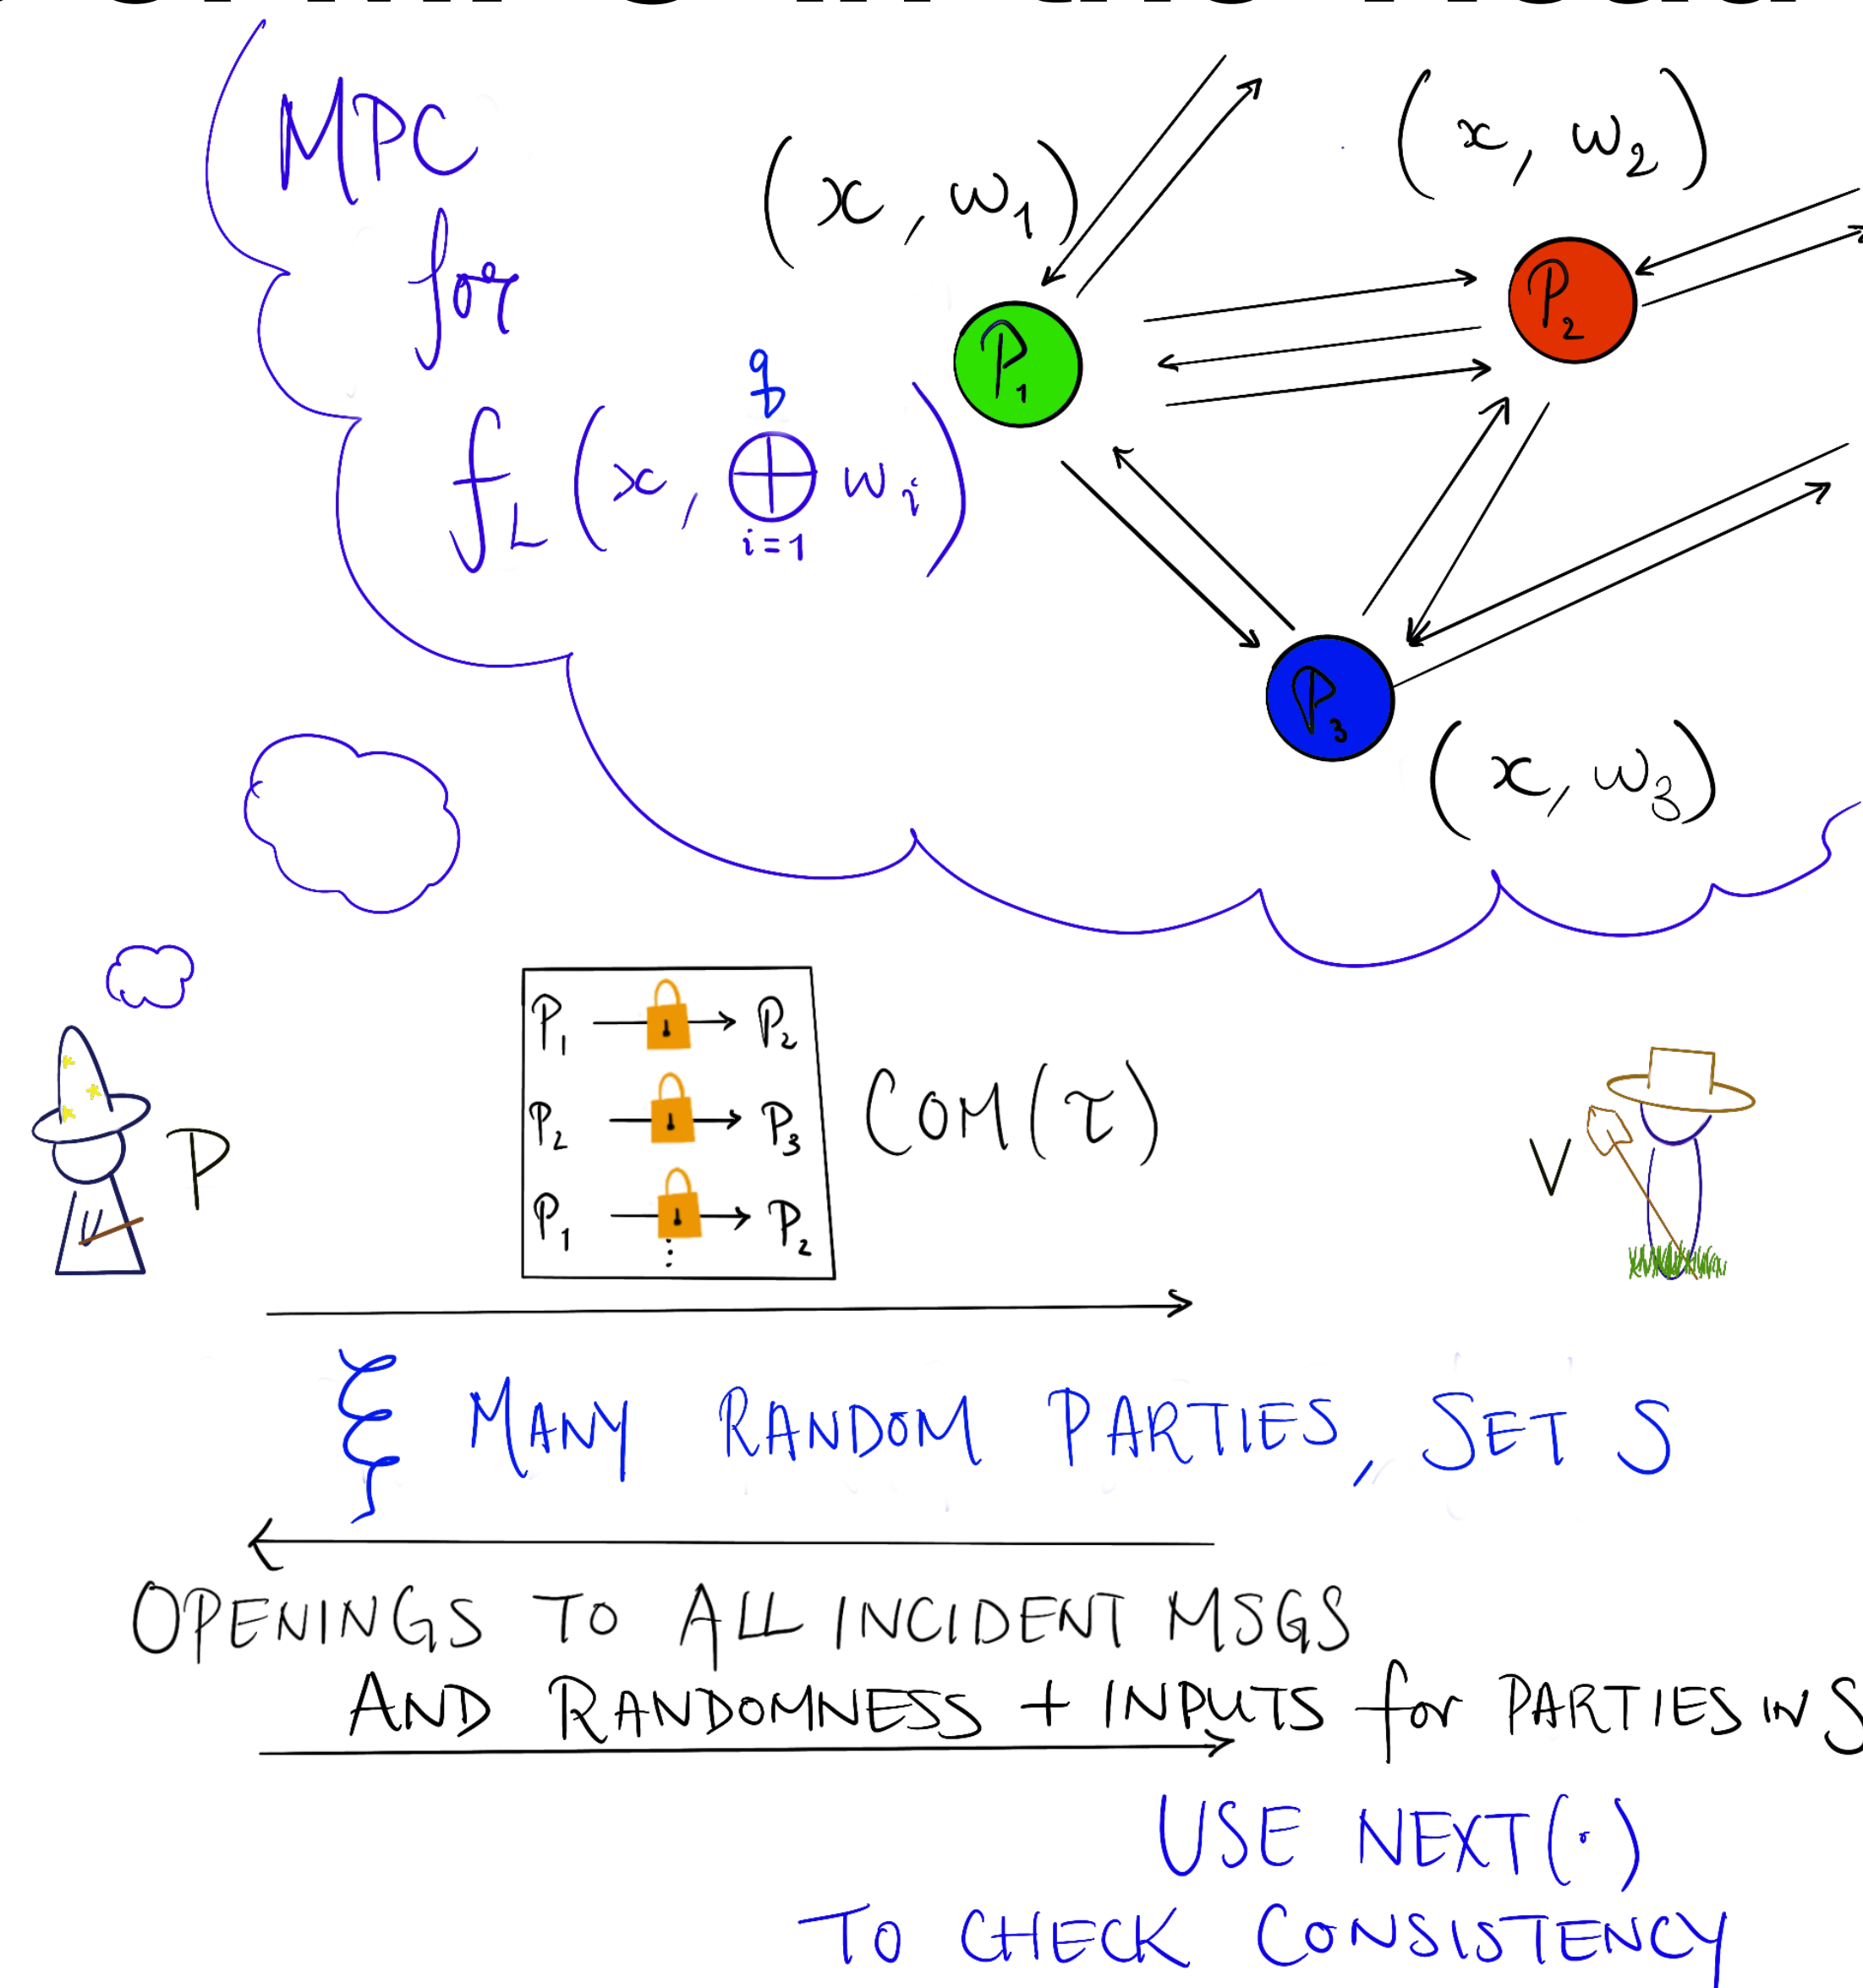 MPC
for
f_L(x, ⊕_{i=1}^{q} w_i)
(x, w_1)
(x, w_2)
P_1
P_2
P_3
(x, w_3)
P_1 → P_2
P_2 → P_3
P_1 → P_2
⋮
COM(τ)
P
V
ξ MANY RANDOM PARTIES, SET S
OPENINGS TO ALL INCIDENT MSGS
AND RANDOMNESS + INPUTS for PARTIES IN S
USE NEXT(·)
TO CHECK CONSISTENCY